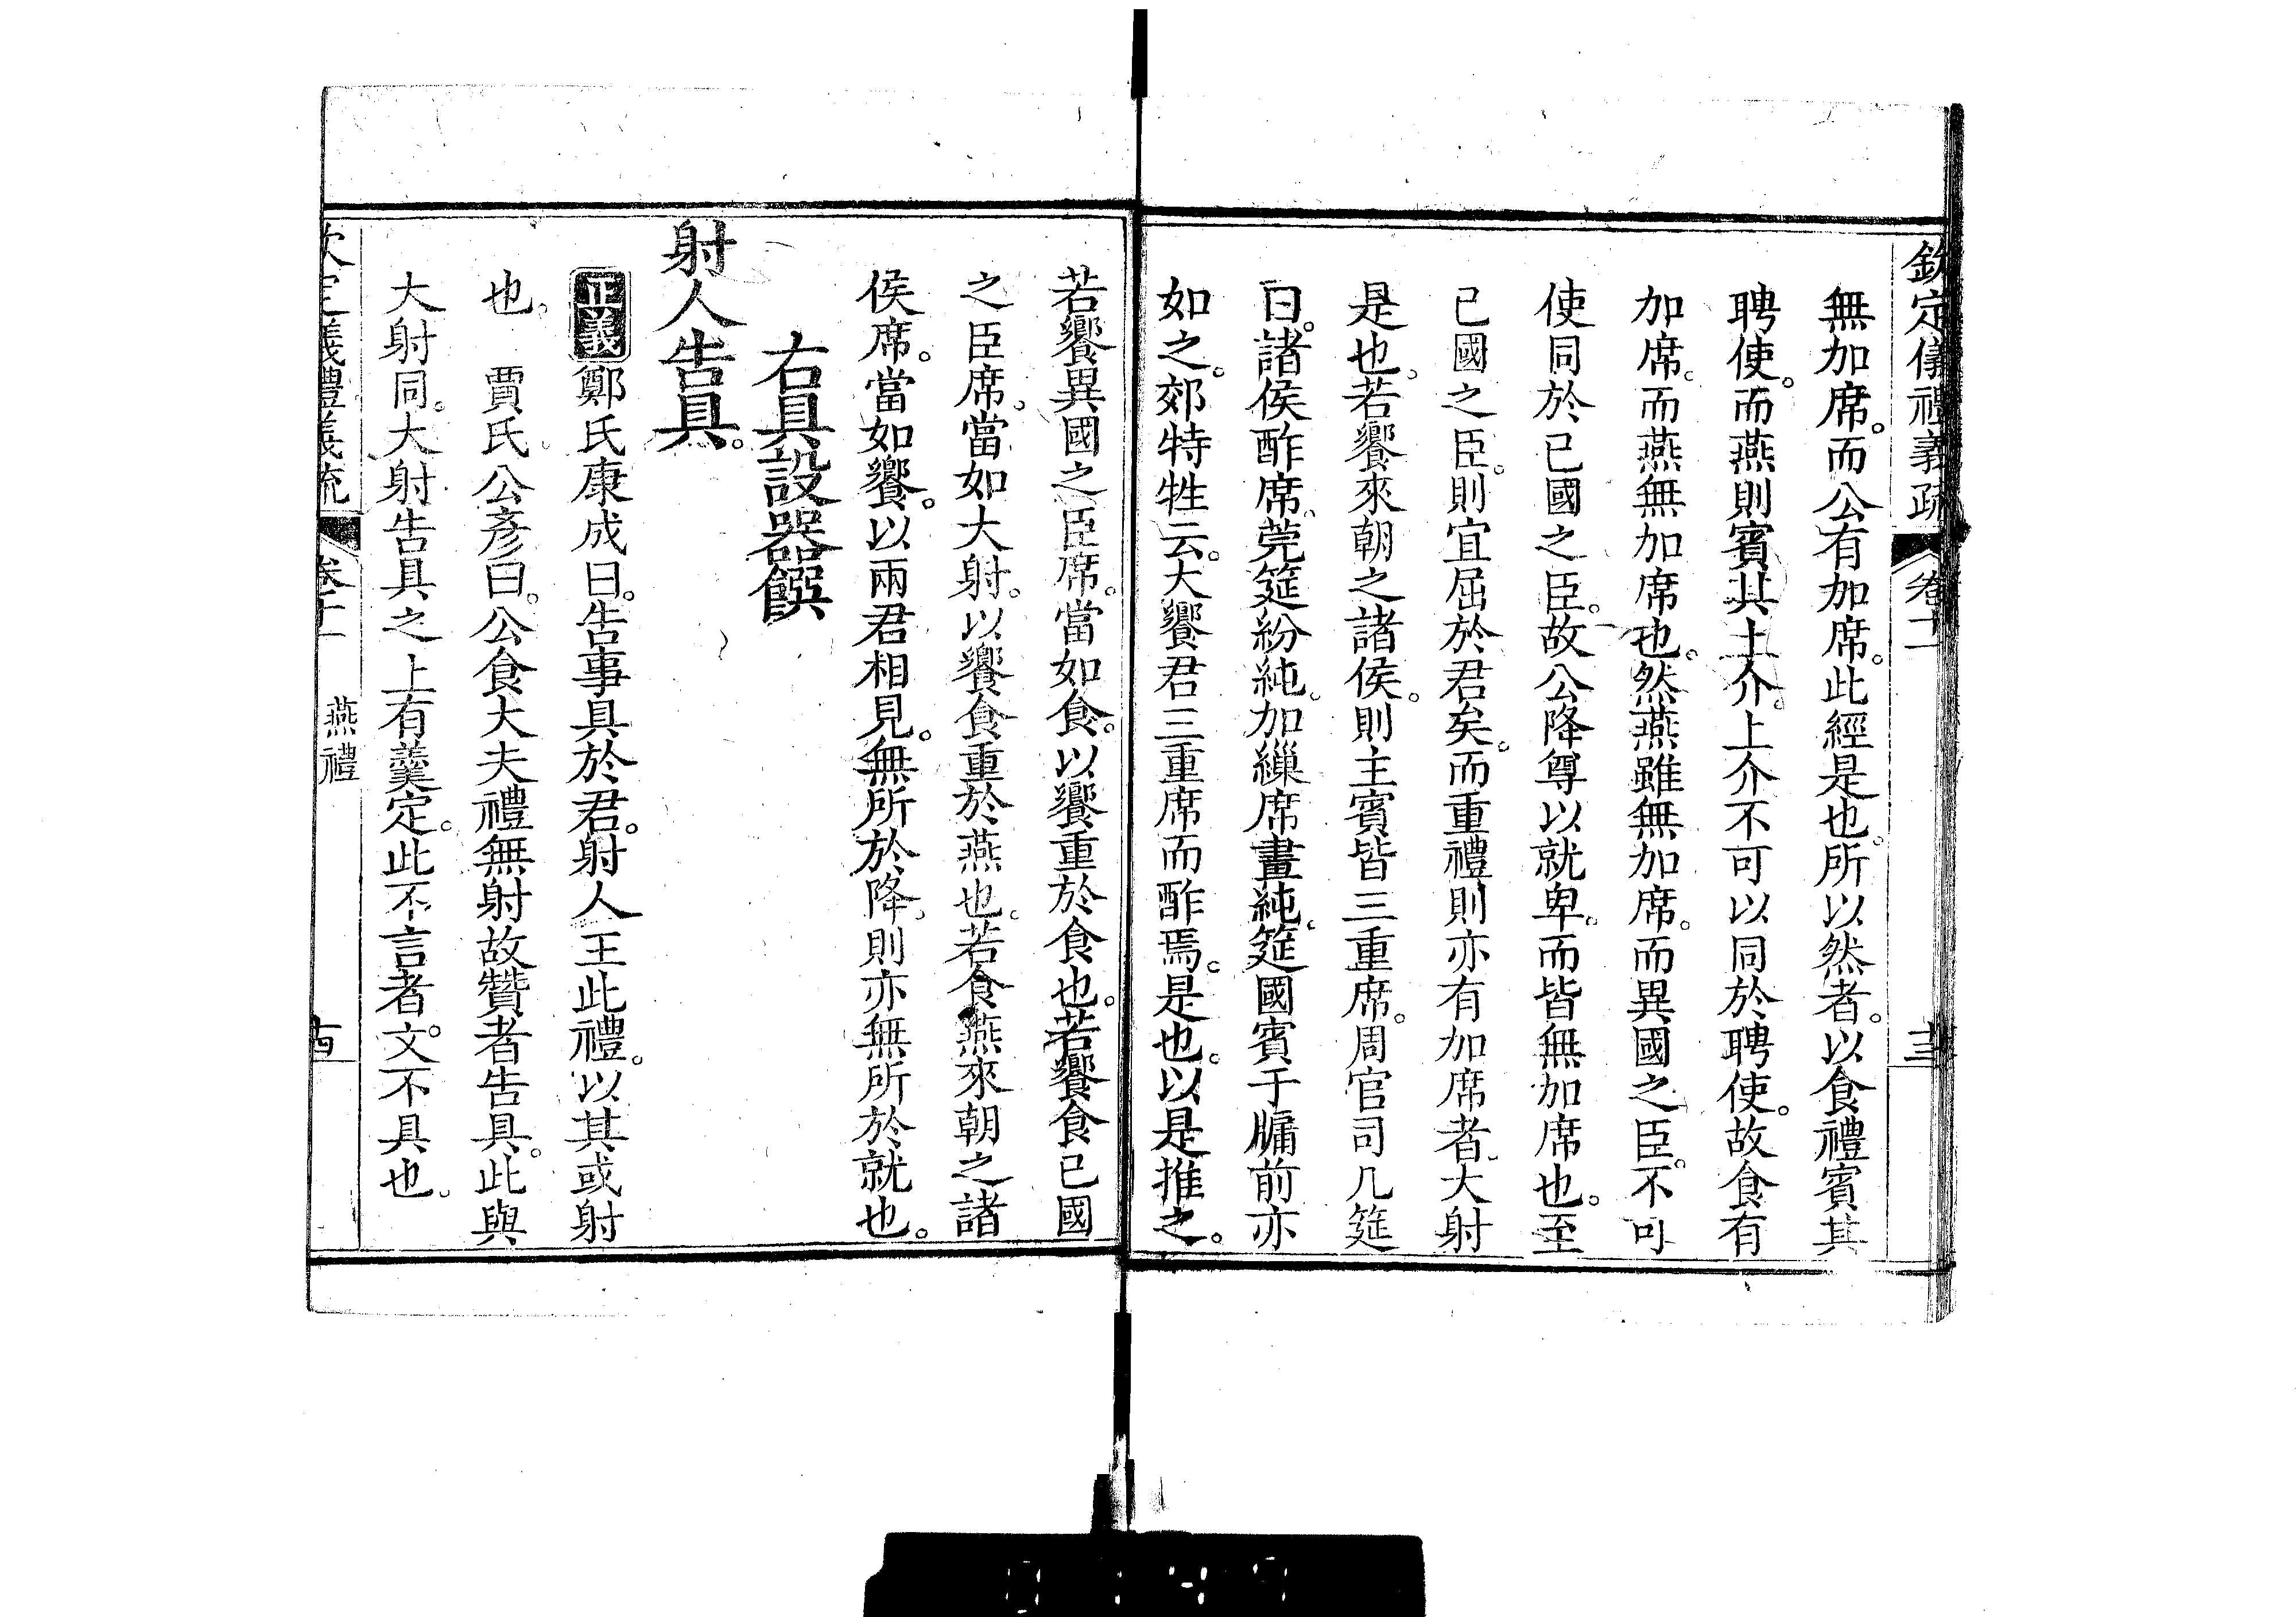 欽定儀禮義疏 卷十一 十三
無加席。而公有加席。此經是也。所以然者。以食禮賓其
聘使。而燕則賓其上介。上介不可以同於聘使。故食有
加席。而燕無加席也。然燕雖無加席。而異國之臣。不可
使同於已國之臣。故公降尊以就卑。而皆無加席也。至
已國之臣。則宜屈於君矣。而重禮則亦有加席者。大射
是也。若饗來朝之諸侯。則主賓皆三重席。周官司几筵
曰。諸侯酢席。莞筵紛純。加繅席畫純。筵國賓于牖前亦
如之。郊特牲云。大饗君三重席而酢焉。是也。以是推之。
若饗異國之臣席。當如食。以饗重於食也。若饗食已國
之臣席。當如大射。以饗食重於燕也。若食燕來朝之諸
侯席。當如饗。以兩君相見。無所於降。則亦無所於就也。
右具設器饌
射人告具。
正義鄭氏康成曰。告事具於君。射人主此禮。以其或射
也。賈氏公彥曰。公食大夫禮無射故贊者告具。此與
大射同。大射告具之上有羹定。此不言者。文不具也。
欽定儀禮義疏 卷十一 燕禮 十四